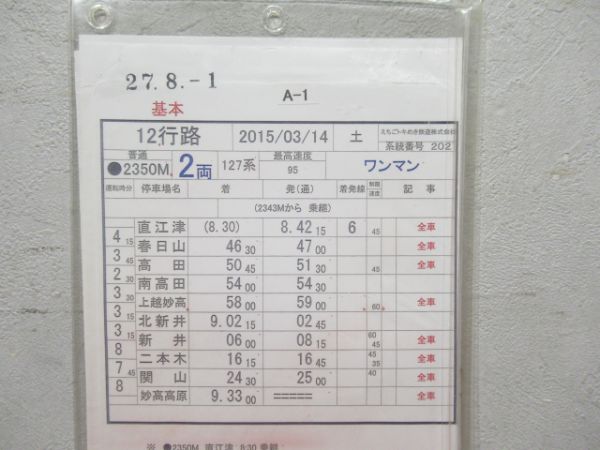 27.8.-1
A-1
基本
12行路 2015/03/14 土 えちごトキめき鉄道株式会社 系統番号 202
普通 ●2350M 2両 127系 最高速度 95 ワンマン
運転時分 停車場名 着 発(通) 着発線 制限速度 記事
(2343Mから 乗継)
直江津 (8.30) 8.42 15 6 45 全車
4 15
春日山 46 30 47 00 全車
3 45
高田 50 45 51 30 45 全車
2 30
南高田 54 00 54 30
3 30
上越妙高 58 00 59 00 60 全車
3 15
北新井 9.02 15 02 45
3 15
新井 06 00 08 15 60 45 全車
8
二本木 16 15 16 45 45 35 全車
7 45
関山 24 30 25 00 40 全車
8
妙高高原 9.33 00 ===== 全車
※ ●2350M 直江津 8:30 乗継